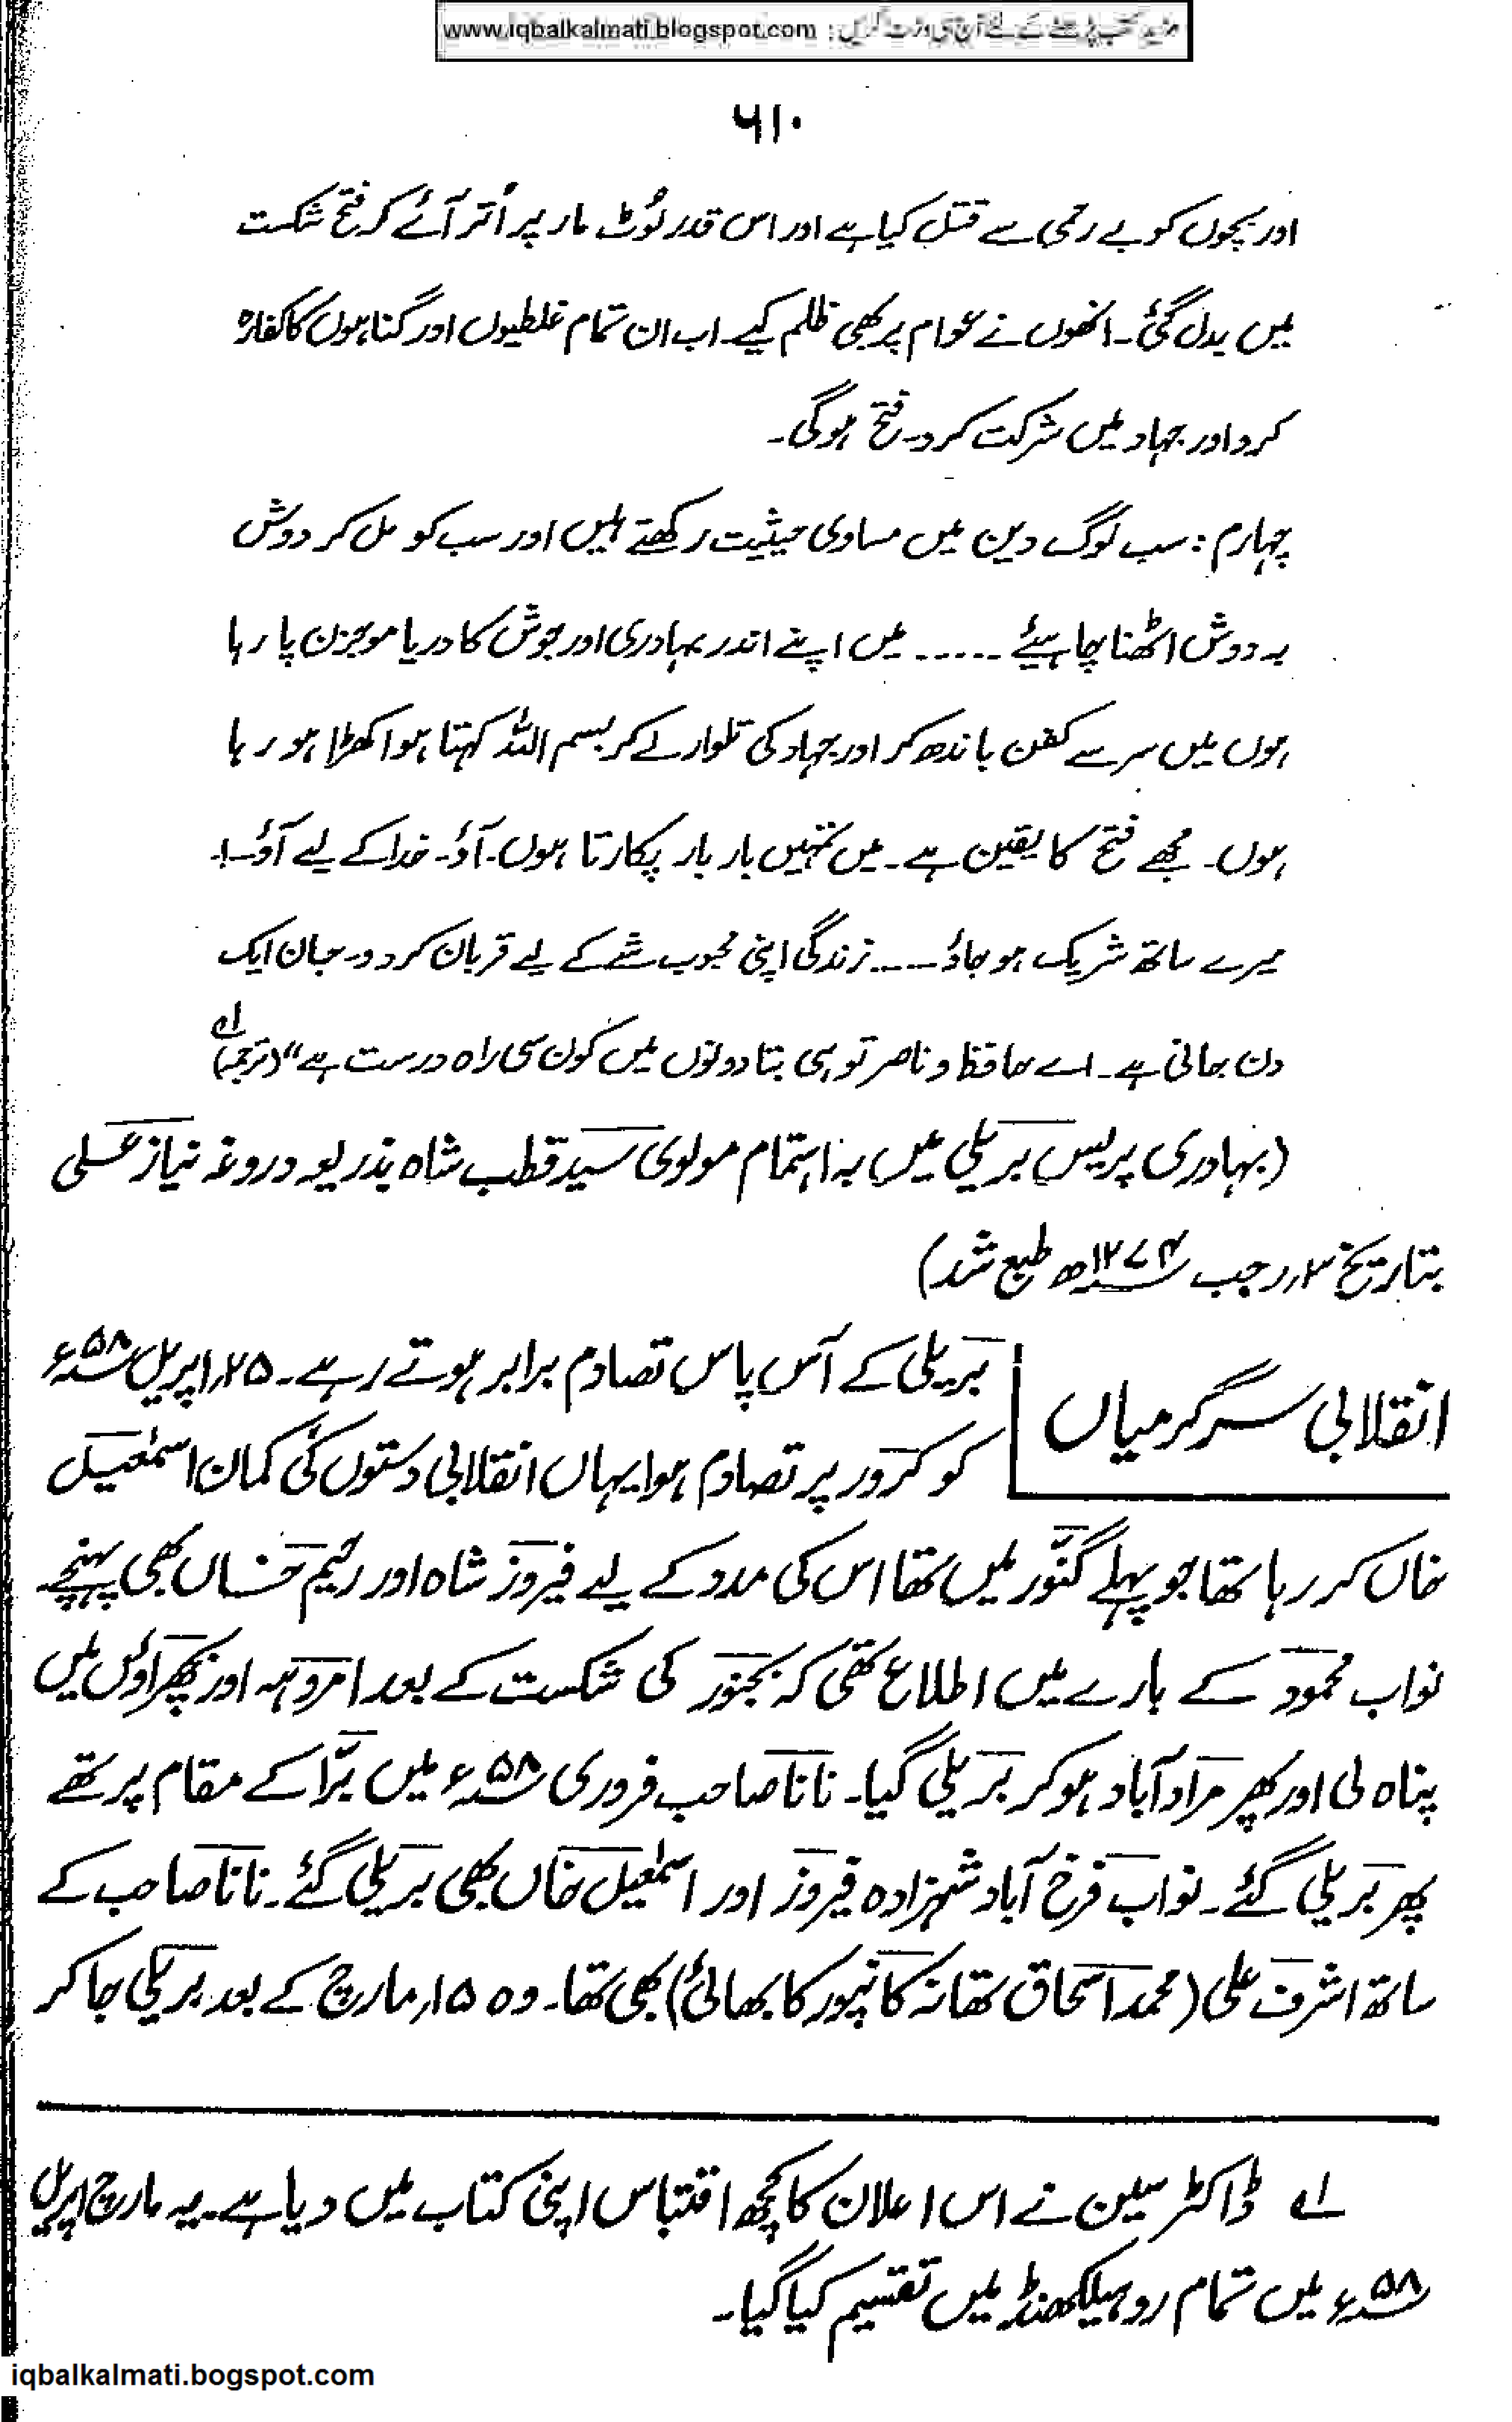 مزید کتب پڑھنے کے لئے آج ہی وزٹ کریں : www.iqbalkalmati.blogspot.com
۵۱۰
اور بچوں کو بے رحمی سے قتل کیا ہے اور اس قدر لُوٹ مار پر اُتر آئے کہ فتح شکست
میں بدل گئی۔ انھوں نے عوام پر بھی ظلم کیے۔ اب ان تمام غلطیوں اور گناہوں کا کفارہ
کرو اور جہاد میں شرکت کرو۔ فتح ہوگی۔
چہارم : سب لوگ دین میں مساوی حیثیت رکھتے ہیں اور سب کو مل کر دوش
بہ دوش اٹھنا چاہیئے ۔۔۔۔۔ میں اپنے اندر بہادری اور جوش کا دریا موجزن پا رہا
ہوں میں سر سے کفن باندھ کر اور جہاد کی تلوار لے کر بسم اللہ کہتا ہوا کھڑا ہو رہا
ہوں۔ مجھے فتح کا یقین ہے۔ میں تمہیں بار بار پکارتا ہوں۔ آؤ۔ خدا کے لیے آؤ۔!
میرے ساتھ شریک ہو جاؤ ۔۔۔۔ زندگی اپنی محبوب شے کے لیے قربان کر دو۔ جان ایک
دن جانی ہے۔ اے حافظ و ناصر تو ہی بتا دونوں میں کون سی راہ درست ہے“ (ترجمہ) لے
(بہادری پریس بریلی میں بہ اہتمام مولوی سید قطب شاہ بذریعہ دروغہ نیاز علی
بتاریخ ۳؍ رجب ۱۲۷۴ھ طبع شد)
انقلابی سرگرمیاں
بریلی کے آس پاس تصادم برابر ہوتے رہے۔ ۲۵؍ اپریل ۵۸ء
کو کرور پر تصادم ہوا یہاں انقلابی دستوں کی کمان اسمٰعیل
خاں کر رہا تھا جو پہلے گنور میں تھا اس کی مدد کے لیے فیروز شاہ اور رحیم خاں بھی پہنچے۔
نواب محمود کے بارے میں اطلاع تھی کہ بجنور کی شکست کے بعد امروہہ اور بچھراؤں میں
پناہ لی اور پھر مراد آباد ہو کر بریلی گیا۔ نانا صاحب فروری ۵۸ء میں بڑا کے مقام پر تھے
پھر بریلی گئے۔ نواب فرخ آباد شہزادہ فیروز اور اسمٰعیل خاں بھی بریلی گئے۔ نانا صاحب کے
ساتھ اشرف علی (محمد اسحاق تھانہ کانپور کا بھائی) بھی تھا۔ وہ ۱۵؍ مارچ کے بعد بریلی جا کر
لے ڈاکٹر سین نے اس اعلان کا کچھ اقتباس اپنی کتاب میں دیا ہے۔ یہ مارچ اپریل
۵۸ء میں تمام روہیلکھنڈ میں تقسیم کیا گیا۔
iqbalkalmati.bogspot.com